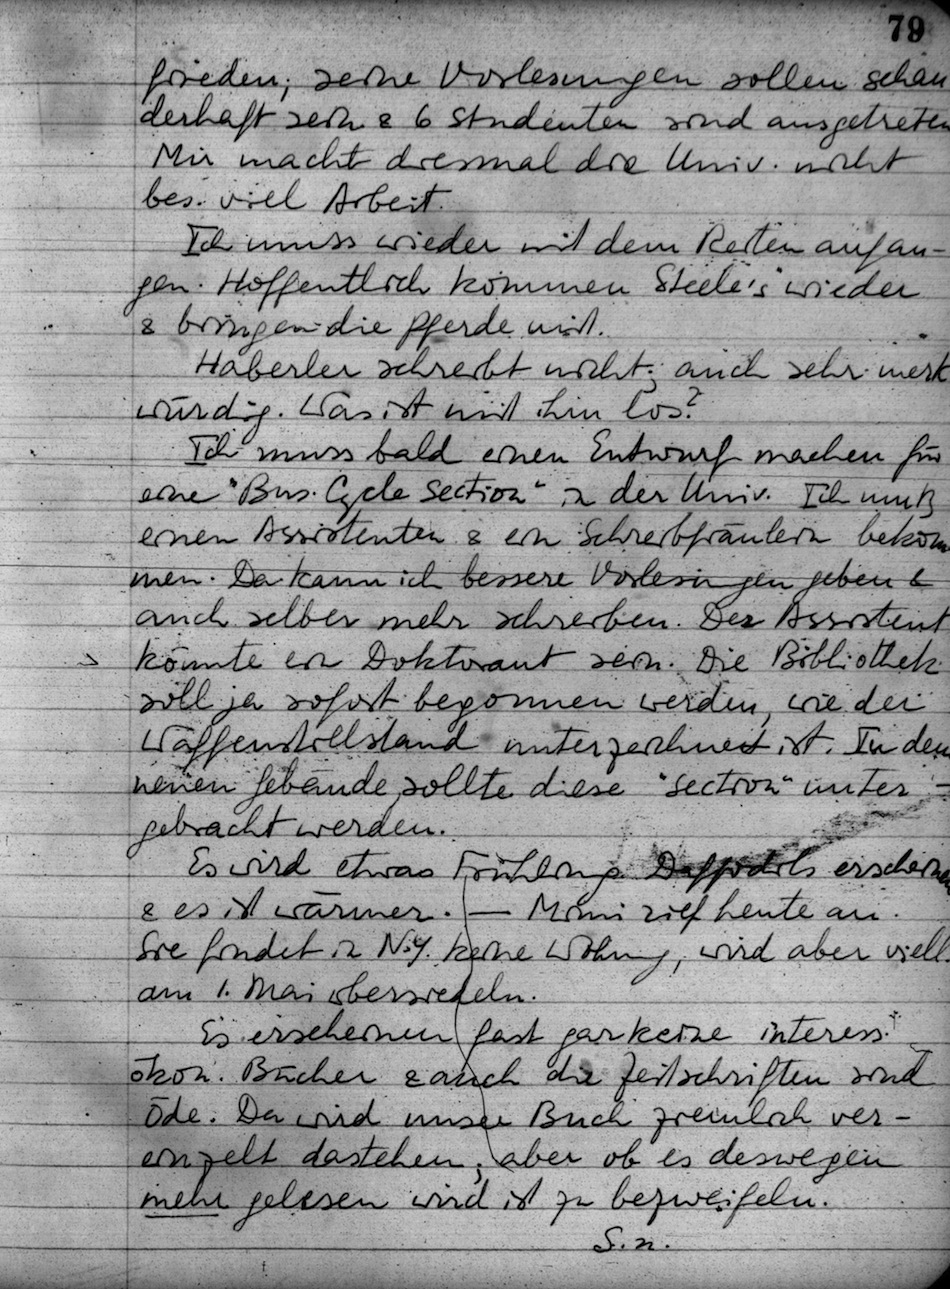 79
frieden; seine Vorlesungen sollen schau
derhaft sein & 6 Studenten sind ausgetreten
Mir macht diesmal die Univ. nicht
bes. viel Arbeit.
Ich muss wieder mit dem Reiten anfan-
gen. Hoffentlich kommen Steele's wieder
& bringen die Pferde mit.
Haberler schreibt nicht; auch sehr merk
würdig. Was ist mit ihm los?
Ich muss bald einen Entwurf machen für
eine "Bus. Cycle Section" in der Univ. Ich muß
einen Assistenten & ein Schreibfräulein bekom
men. Da kann ich bessere Vorlesungen geben &
auch selber mehr schreiben. Der Assistent
könnte ein Doktorant sein. Die Bibliothek
soll ja sofort begonnen werden, wie der
Waffenstillstand unterzeichnet ist. In dem
neuen Gebäude sollte diese "section" unter-
gebracht werden.
Es wird etwas Frühling. Daffodils erscheinen
& es ist wärmer. — Mimi rief heute an.
Sie findet in N.Y. keine Wohng, wird aber viell.
am 1. Mai übersiedeln.
Es erscheinen fast gar keine interess.
ökon. Bücher & auch die Zeitschriften sind
öde. Da wird unser Buch ziemlich ver-
einzelt dastehen; aber ob es deswegen
mehr gelesen wird ist zu bezweifeln.